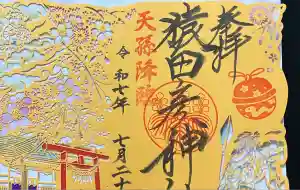 奉拝
猿田彦神社
天孫降臨
令和七年 七月二十